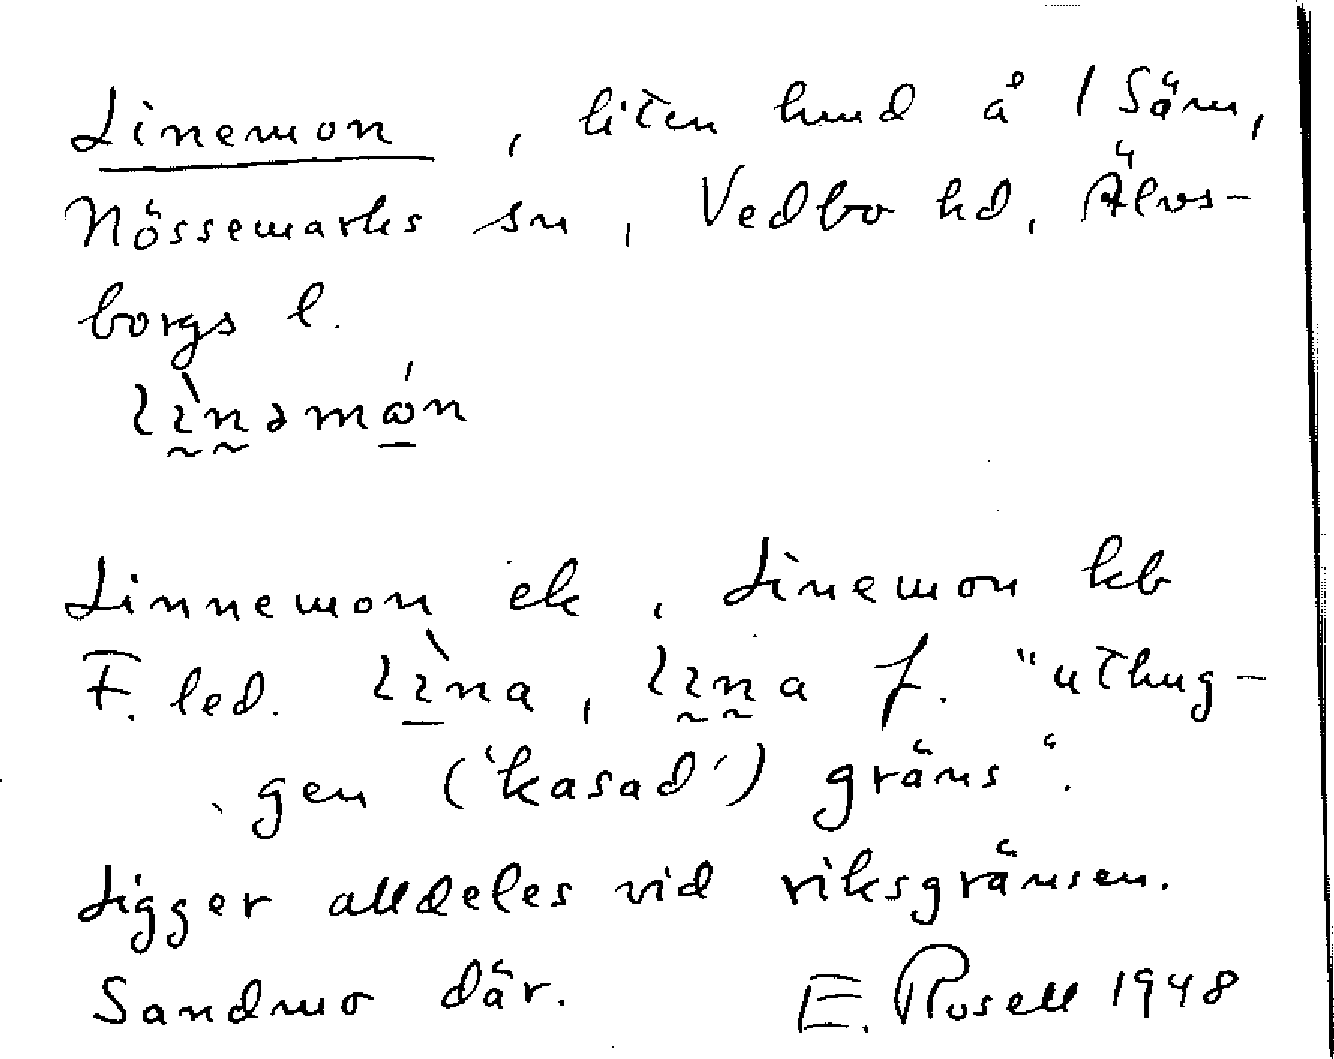 Linemon, liten lund å 1 Säm,
Nössemarks sn, Vedbo hd, Älvs-
borgs l.
lìnəmón
Linnemon ek, Linemon kb
F. led. lìna, lına f. "uthug-
gen ('kasad') gräns".
Ligger alldeles vid riksgränsen.
Sandmo där. E. Rosell 1948